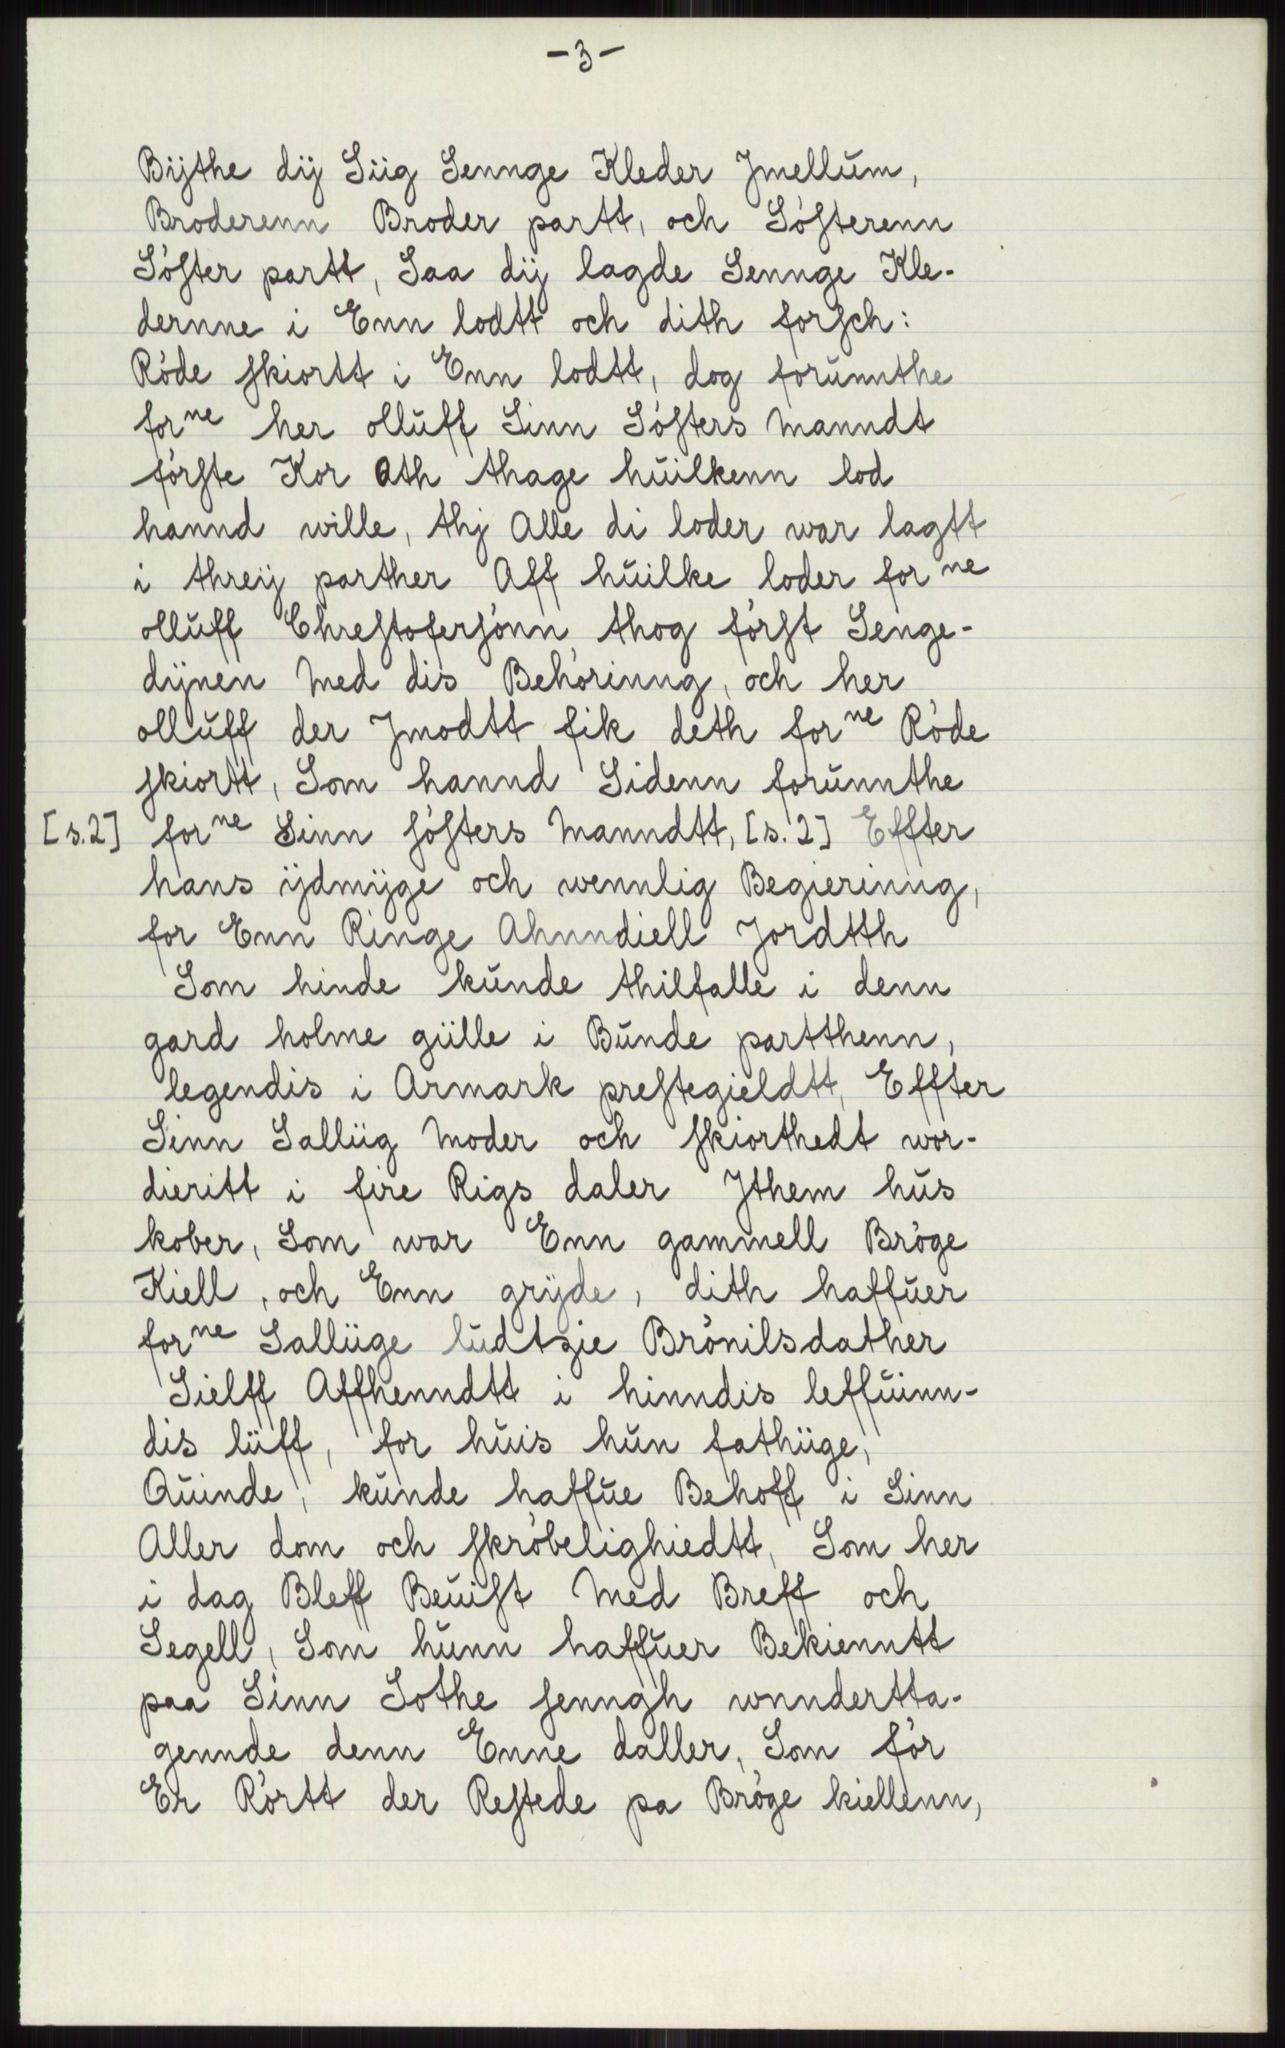 -3-
Bijthe dij Siig Sennge Kleder Jmellŭm,
Broderenn Broder partt, och Sósterenn
Sóster partt, Saa dij lagde Sennge Kle-
dernne i Enn lodtt och dith forsch:
Róde skiortt i Enn lodtt, dog forŭnnthe
forⁿᵉ her ollŭff Sinn Sósters Manndt
fórste Kor Ath thage hŭilkenn lod
hannd wille, thj Alle di loder war lagtt
i threij parther Aff hŭilke loder forⁿᵉ
ollŭff Chrestofersónn, thog fórst Senge-
dijnen Med dis Behórinng, och her
ollŭff der Jmodtt fik deth forⁿᵉ Róde
skiortt, Som hannd Sidenn forŭnnthe
[s.2] forⁿᵉ Sinn sósters Manndtt, [s.2] Effter
hans ijdmijge och wennlig Begierinng,
for Enn Ringe Ahnndiell Jordtth
Som hinde kŭnde thilfalle i denn
gard holme giille i Bŭnde partthenn,
legendis i Armark prestegieldtt, Effter
Sinn Salliig Moder och skiorthedt wor-
dieritt i fire Rigs daler Jthem hŭs
kober, Som war Enn gammell Bróge
Kiell, och Enn grijde, dith haffŭer
forⁿᵉ Salliige lŭdtzie Brónilsdather
Sielff Affhenndtt i hinndis leffŭinn-
dis liiff, for hŭis hŭn fathiige,
Qŭinde, kŭnde haffŭe Behoff i Sinn
Aller dom och skróbelighiedtt, Som her
i dag Bleff Beŭist Med Breff och
Segell, Som hŭnn haffŭer Bekienntt
paa Sinn Sothe senngh wnndertta-
gennde denn Enne daller, Som fór
Er Rórtt der Restede pa Bróge kiellenn,